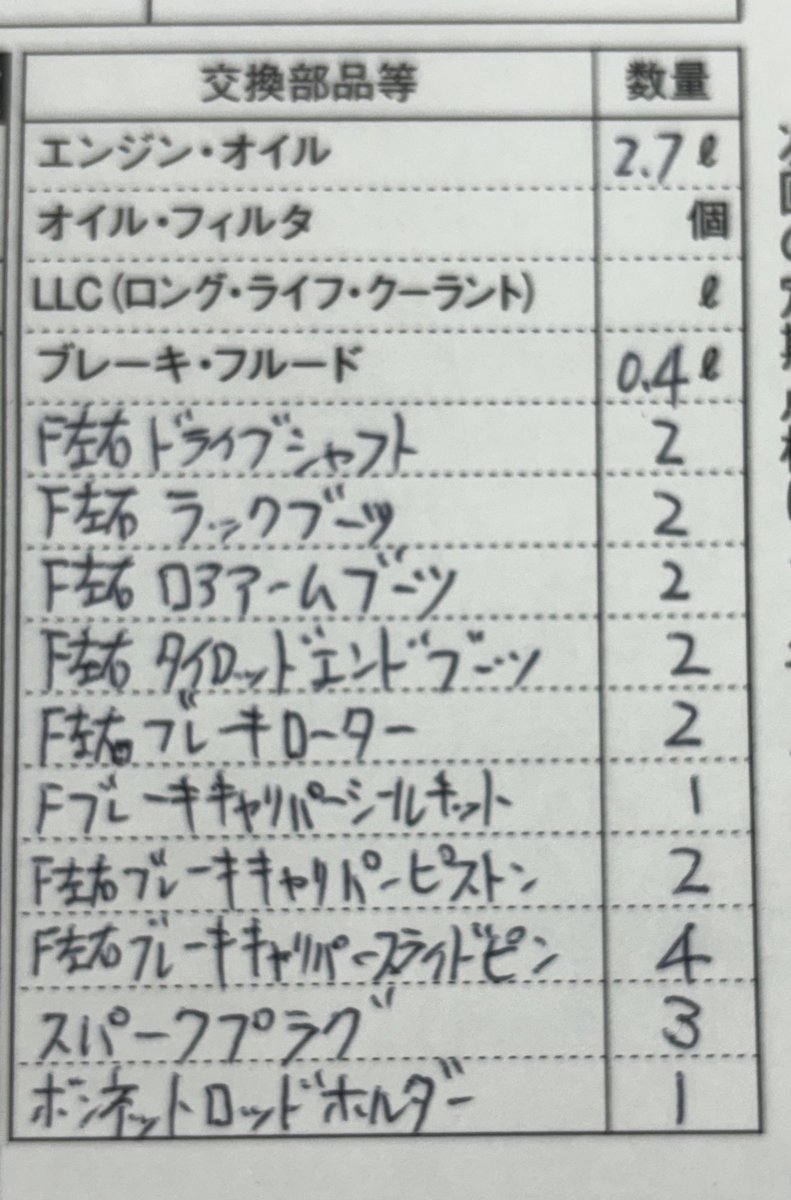 交換部品等 数量
エンジン・オイル 2.7 ℓ
オイル・フィルタ 個
LLC(ロング・ライフ・クーラント) ℓ
ブレーキ・フルード 0.4 ℓ
F左右 ドライブシャフト 2
F左右 ラックブーツ 2
F左右 ロアアームブーツ 2
F左右 タイロッドエンドブーツ 2
F左右ブレーキローター 2
Fブレーキキャリパーシールキット 1
F左右ブレーキキャリパーピストン 2
F左右ブレーキキャリパースライドピン 4
スパークプラグ 3
ボンネットロッドホルダー 1